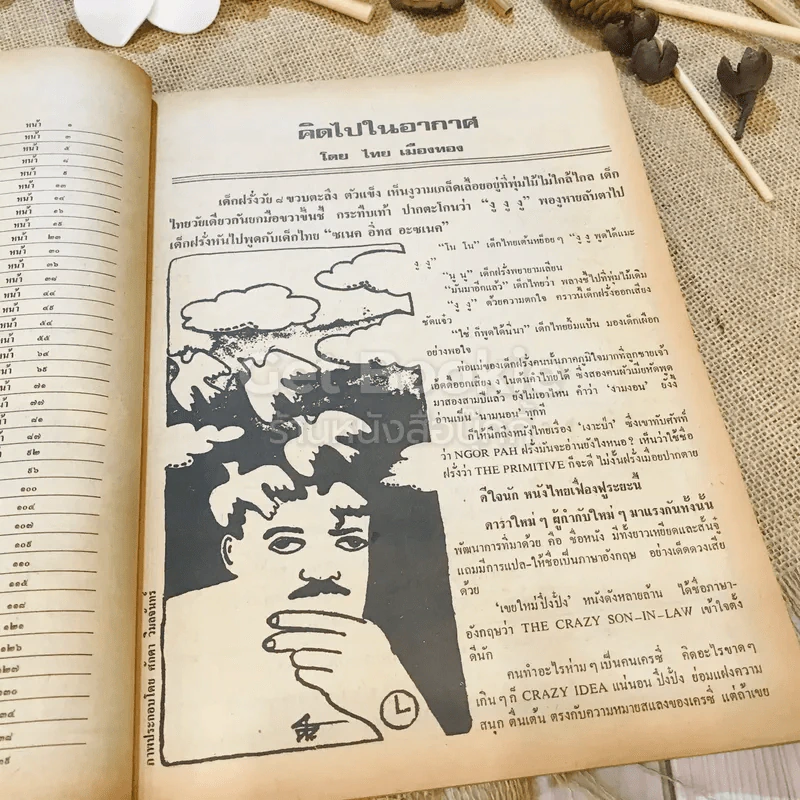 หน้า ๑
หน้า ๓
หน้า ๕
หน้า ๘
หน้า ๙
หน้า ๑๓
หน้า ๑๔
หน้า ๑๖
หน้า ๑๙
หน้า ๒๓
หน้า ๓๐
หน้า ๓๒
หน้า ๓๗
หน้า ๔๔
หน้า ๔๙
หน้า ๕๔
หน้า ๕๕
หน้า ๖๙
หน้า ๗๑
หน้า ๗๗
หน้า ๘๑
หน้า ๘๗
หน้า ๙๒
๙๖
๑๐๐
๑๐๔
๑๐๗
๑๐๙
๑๑๐
๑๑๕
๑๑๘
๑๒๑
คิดไปในอากาศ
โดย ไทย เมืองทอง
เด็กฝรั่งวัย ๘ ขวบตะลึง ตัวแข็ง เห็นงูวามเกล็ดเลื้อยอยู่ที่พุ่มไม้ไม่ใกล้ไกล เด็ก
ไทยวัยเดียวกันยกมือขวาขึ้นชี้ กระทืบเท้า ปากตะโกนว่า “งู งู งู” พองูหายลับตาไป
เด็กฝรั่งหันไปพูดกับเด็กไทย “ซเนค อิ๊ทส อะซเนค”
“โน โน” เด็กไทยเต้นหย็อยๆ “งู งู พูดได้แมะ
งู งู”
“นู นู” เด็กฝรั่งพยายามเลียน
“มันมาอีกแล้ว” เด็กไทยว่า พลางชี้ไปที่พุ่มไม้เดิม
“งู งู” ด้วยความตกใจ คราวนี้เด็กฝรั่งออกเสียง
ชัดแจ๋ว
“ใช่ ก็พูดได้นี่นา” เด็กไทยยิ้มแป้น มองเด็กเผือก
อย่างพอใจ
พ่อแม่ของเด็กฝรั่งคนนั้นภาคภูมิใจมากที่ลูกชายเจ้า
เอ้ดดี้ออกเสียง งู ในต้นคำไทยได้ ซึ่งสองคนผัวเมียหัดพูด
มาสองสามปีแล้ว ยังไม่เอาไหน คำว่า ‘งามงอน’ ยังงี้
อ่านเป็น ‘นามนอน’ ทุกที
ก็ให้นึกถึงหนังไทยเรื่อง ‘เงาะป่า’ ซึ่งเขาทับศัพท์
ว่า NGOR PAH ฝรั่งมันจะอ่านยังไงหนอ? เห็นว่าใช้ชื่อ
ฝรั่งว่า THE PRIMITIVE ก็จะดี ไม่งั้นฝรั่งเมื่อยปากตาย
ดีใจนัก หนังไทยเฟื่องฟูระยะนี้
ดาราใหม่ๆ ผู้กำกับใหม่ๆ มาแรงกันทั้งนั้น
พัฒนาการที่มาด้วย คือ ชื่อหนัง มีทั้งยาวเหยียดและสั้นจู๋
แถมมีการแปล-ให้ชื่อเป็นภาษาอังกฤษ อย่างเด็ดดวงเสีย
ด้วย
‘เขยใหม่ปึ๋งปั๋ง’ หนังดังหลายล้าน ได้ชื่อภาษา-
อังกฤษว่า THE CRAZY SON-IN-LAW เข้าใจตั้ง
ดีนัก
คนทำอะไรห่ามๆ เป็นคนเครซี่ คิดอะไรขาดๆ
เกินๆ ก็ CRAZY IDEA แน่นอน ปึ๋งปั๋ง ย่อมแฝงความ
สนุก ตื่นเต้น ตรงกับความหมายสแลงของเครซี่ แต่ถ้าเขย
ภาพประกอบโดย ศักดา วิมลจันทร์
ร้านหนังสือ